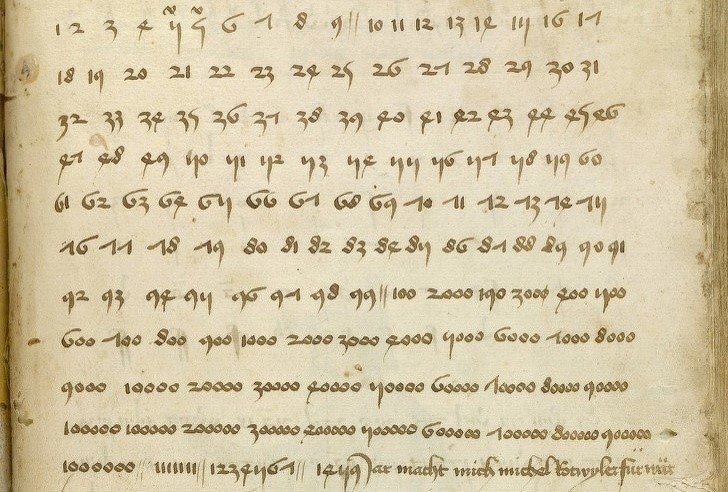 1 2 3 4 5 5 6 7 8 9 // 10 11 12 13 14 15 16 17
18 19 20 21 22 23 24 25 26 27 28 29 30 31
32 33 34 35 36 37 38 39 40 41 42 43 44 45 46
47 48 49 50 51 52 53 54 55 56 57 58 59 60
61 62 63 64 65 66 67 68 69 70 71 72 73 74 75
76 77 78 79 80 81 82 83 84 85 86 87 88 89 90 91
92 93 94 95 96 97 98 99 // 100 2000 190 3000 400 500
600 700 800 900 1000 2000 3000 4000 5000 6000 7000 8000
9000 10000 20000 30000 40000 50000 60000 70000 80000 90000
100000 100000 200000 300000 400000 500000 600000 700000 800000 900000
1000000 // 1111111 // 1234567 // 1459 Jar macht mich michel Rotwyler für war